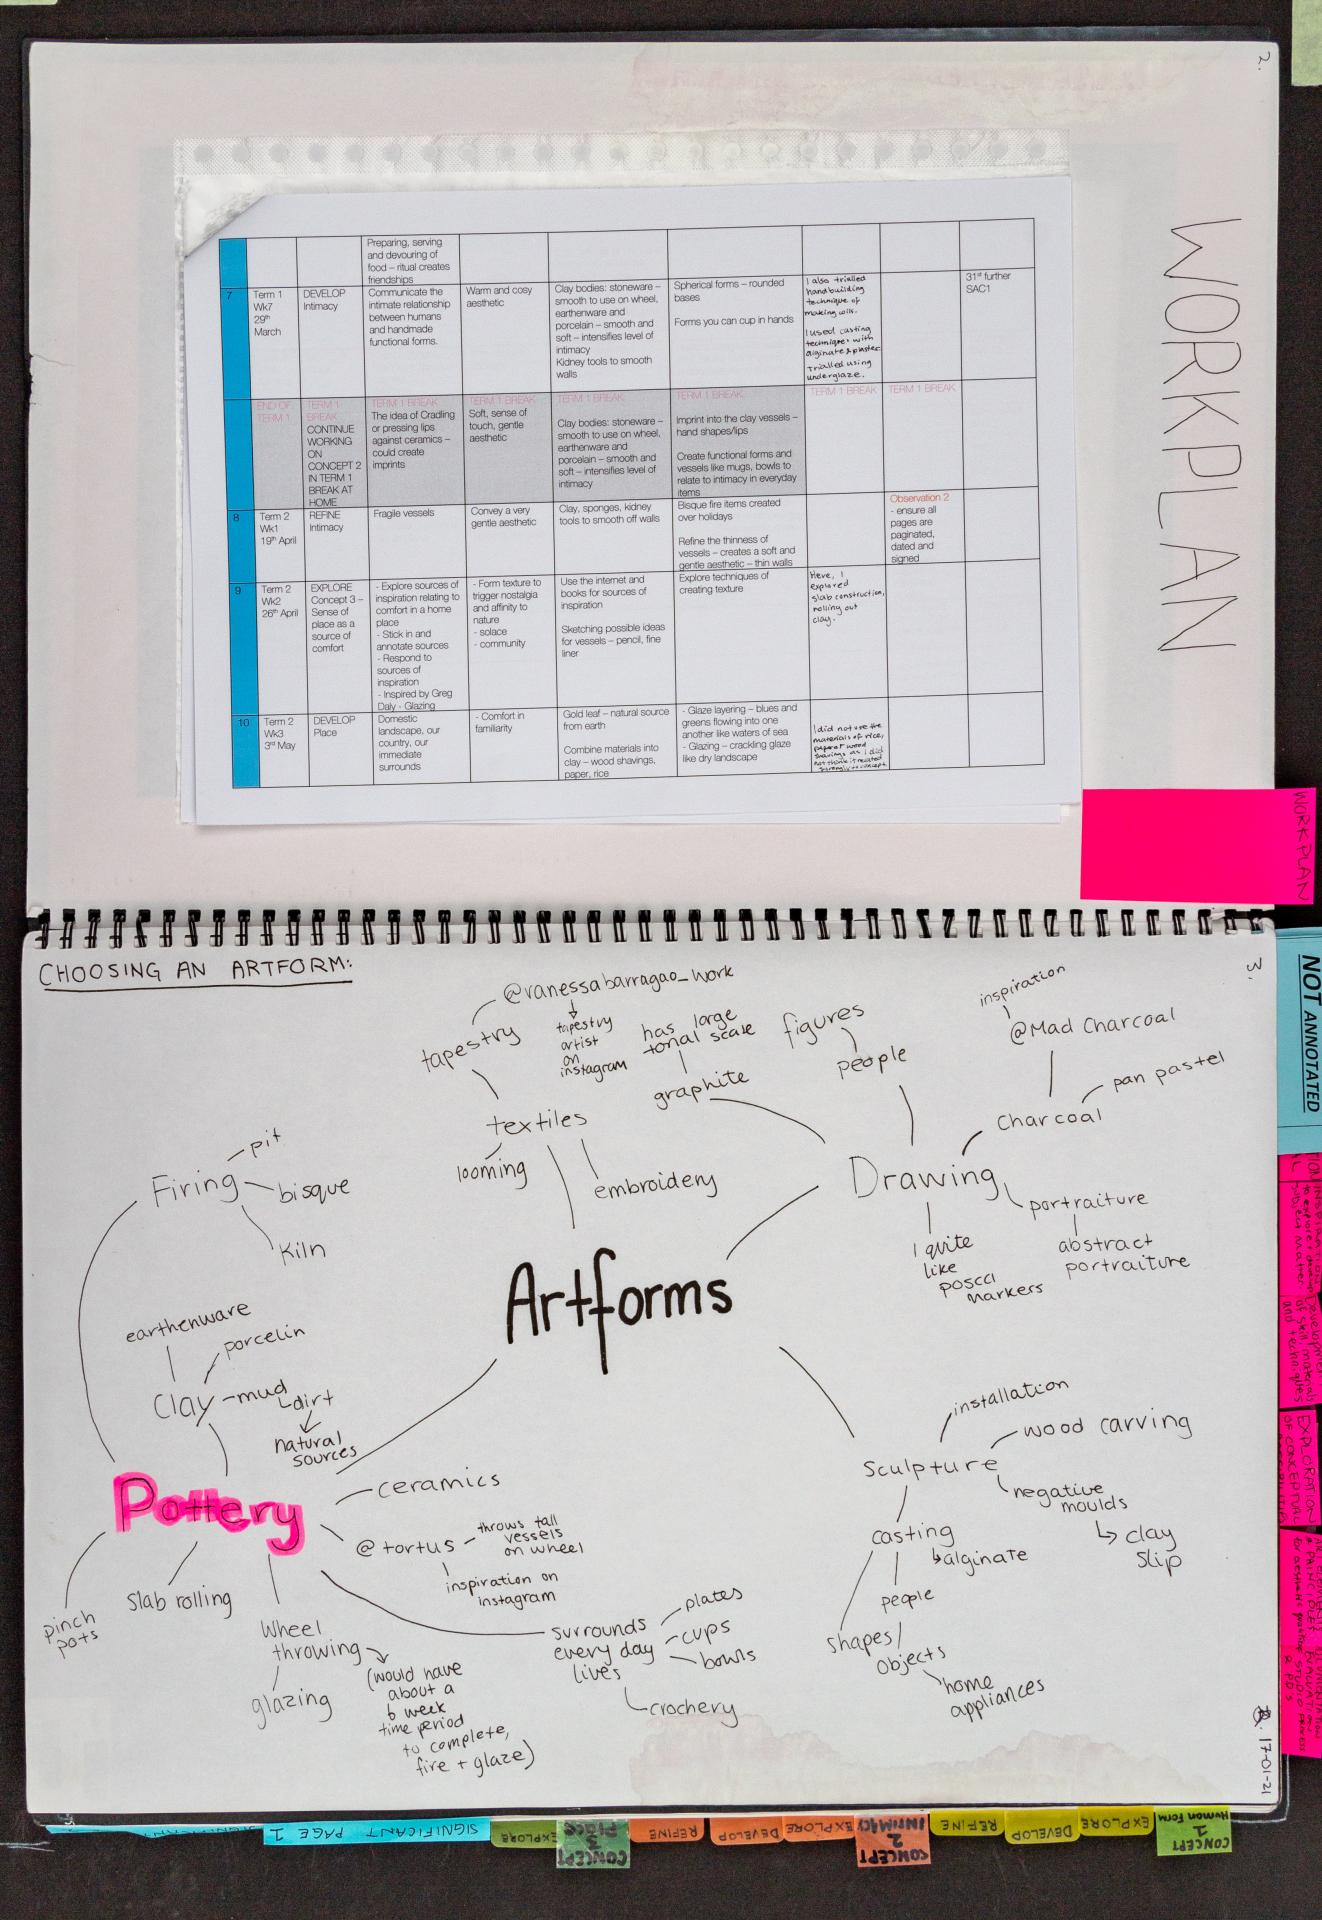 2.
WORKPLAN
Preparing, serving
and devouring of
food – ritual creates
friendships
7
Term 1
Wk7
29th
March
DEVELOP
Intimacy
Communicate the
intimate relationship
between humans
and handmade
functional forms.
Warm and cosy
aesthetic
Clay bodies: stoneware –
smooth to use on wheel,
earthenware and
porcelain – smooth and
soft – intensifies level of
intimacy
Kidney tools to smooth
walls
Spherical forms – rounded
bases
Forms you can cup in hands
I also trialled
handbuilding
technique of
making coils.
I used casting
techniques with
alginate & plaster
Trialled using
underglaze.
31st further
SAC1
END OF
TERM 1
TERM 1
BREAK
CONTINUE
WORKING
ON
CONCEPT 2
IN TERM 1
BREAK AT
HOME
TERM 1 BREAK
The idea of Cradling
or pressing lips
against ceramics –
could create
imprints
TERM 1 BREAK
Soft, sense of
touch, gentle
aesthetic
TERM 1 BREAK
Clay bodies: stoneware –
smooth to use on wheel,
earthenware and
porcelain – smooth and
soft – intensifies level of
intimacy
TERM 1 BREAK
Imprint into the clay vessels –
hand shapes/lips
Create functional forms and
vessels like mugs, bowls to
relate to intimacy in everyday
items
TERM 1 BREAK
TERM 1 BREAK
8
Term 2
Wk1
19th April
REFINE
Intimacy
Fragile vessels
Convey a very
gentle aesthetic
Clay, sponges, kidney
tools to smooth off walls
Bisque fire items created
over holidays
Refine the thinness of
vessels – creates a soft and
gentle aesthetic – thin walls
Observation 2
- ensure all
pages are
paginated,
dated and
signed
9
Term 2
Wk2
26th April
EXPLORE
Concept 3 –
Sense of
place as a
source of
comfort
- Explore sources of
inspiration relating to
comfort in a home
place
- Stick in and
annotate sources
- Respond to
sources of
inspiration
- Inspired by Greg
Daly - Glazing
- Form texture to
trigger nostalgia
and affinity to
nature
- solace
- community
Use the internet and
books for sources of
inspiration
Sketching possible ideas
for vessels – pencil, fine
liner
Explore techniques of
creating texture
Here, I
explored
slab construction,
rolling out
clay.
10
Term 2
Wk3
3rd May
DEVELOP
Place
Domestic
landscape, our
country, our
immediate
surrounds
- Comfort in
familiarity
Gold leaf – natural source
from earth
Combine materials into
clay – wood shavings,
paper, rice
- Glaze layering – blues and
greens flowing into one
another like waters of sea
- Glazing – crackling glaze
like dry landscape
I did not use the
materials of rice,
paper & wood
shavings as I did
not think it related
strongly to concept
WORKPLAN
CHOOSING AN ARTFORM:
3.
NOT ANNOTATED
@vanessabarragao_work
tapestry
tapestry
artist
on
instagram
textiles
looming
embroidery
has large
tonal scale
graphite
figures
people
inspiration
@Mad Charcoal
Charcoal
pan pastel
Drawing
portraiture
abstract
portraiture
I quite
like
posca
markers
Firing
pit
bisque
Kiln
Artforms
earthenware
porcelin
Clay
mud
dirt
natural
sources
Pottery
ceramics
@tortus
throws tall
vessels
on wheel
inspiration on
instagram
pinch
pots
Slab rolling
Wheel
throwing
glazing
(would have
about a
6 week
time period
to complete,
fire + glaze)
surrounds
every day
lives
plates
cups
bowls
crochery
Sculpture
installation
wood carving
negative
moulds
clay
slip
casting
alginate
people
shapes/
objects
home
appliances
17-01-21
EXPLORATION
OF CONCEPTUAL
SIGNIFICANT PAGE 1
EXPLORE
CONCEPT
3
PLACE
REFINE
DEVELOP
EXPLORE
CONCEPT
2
INTIMACY
REFINE
DEVELOP
EXPLORE
CONCEPT
1
Human form